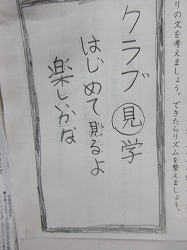 りの文を考えましょう。できたらリズムを整えましょう。
クラブ見学
はじめて見るよ
楽しいかな